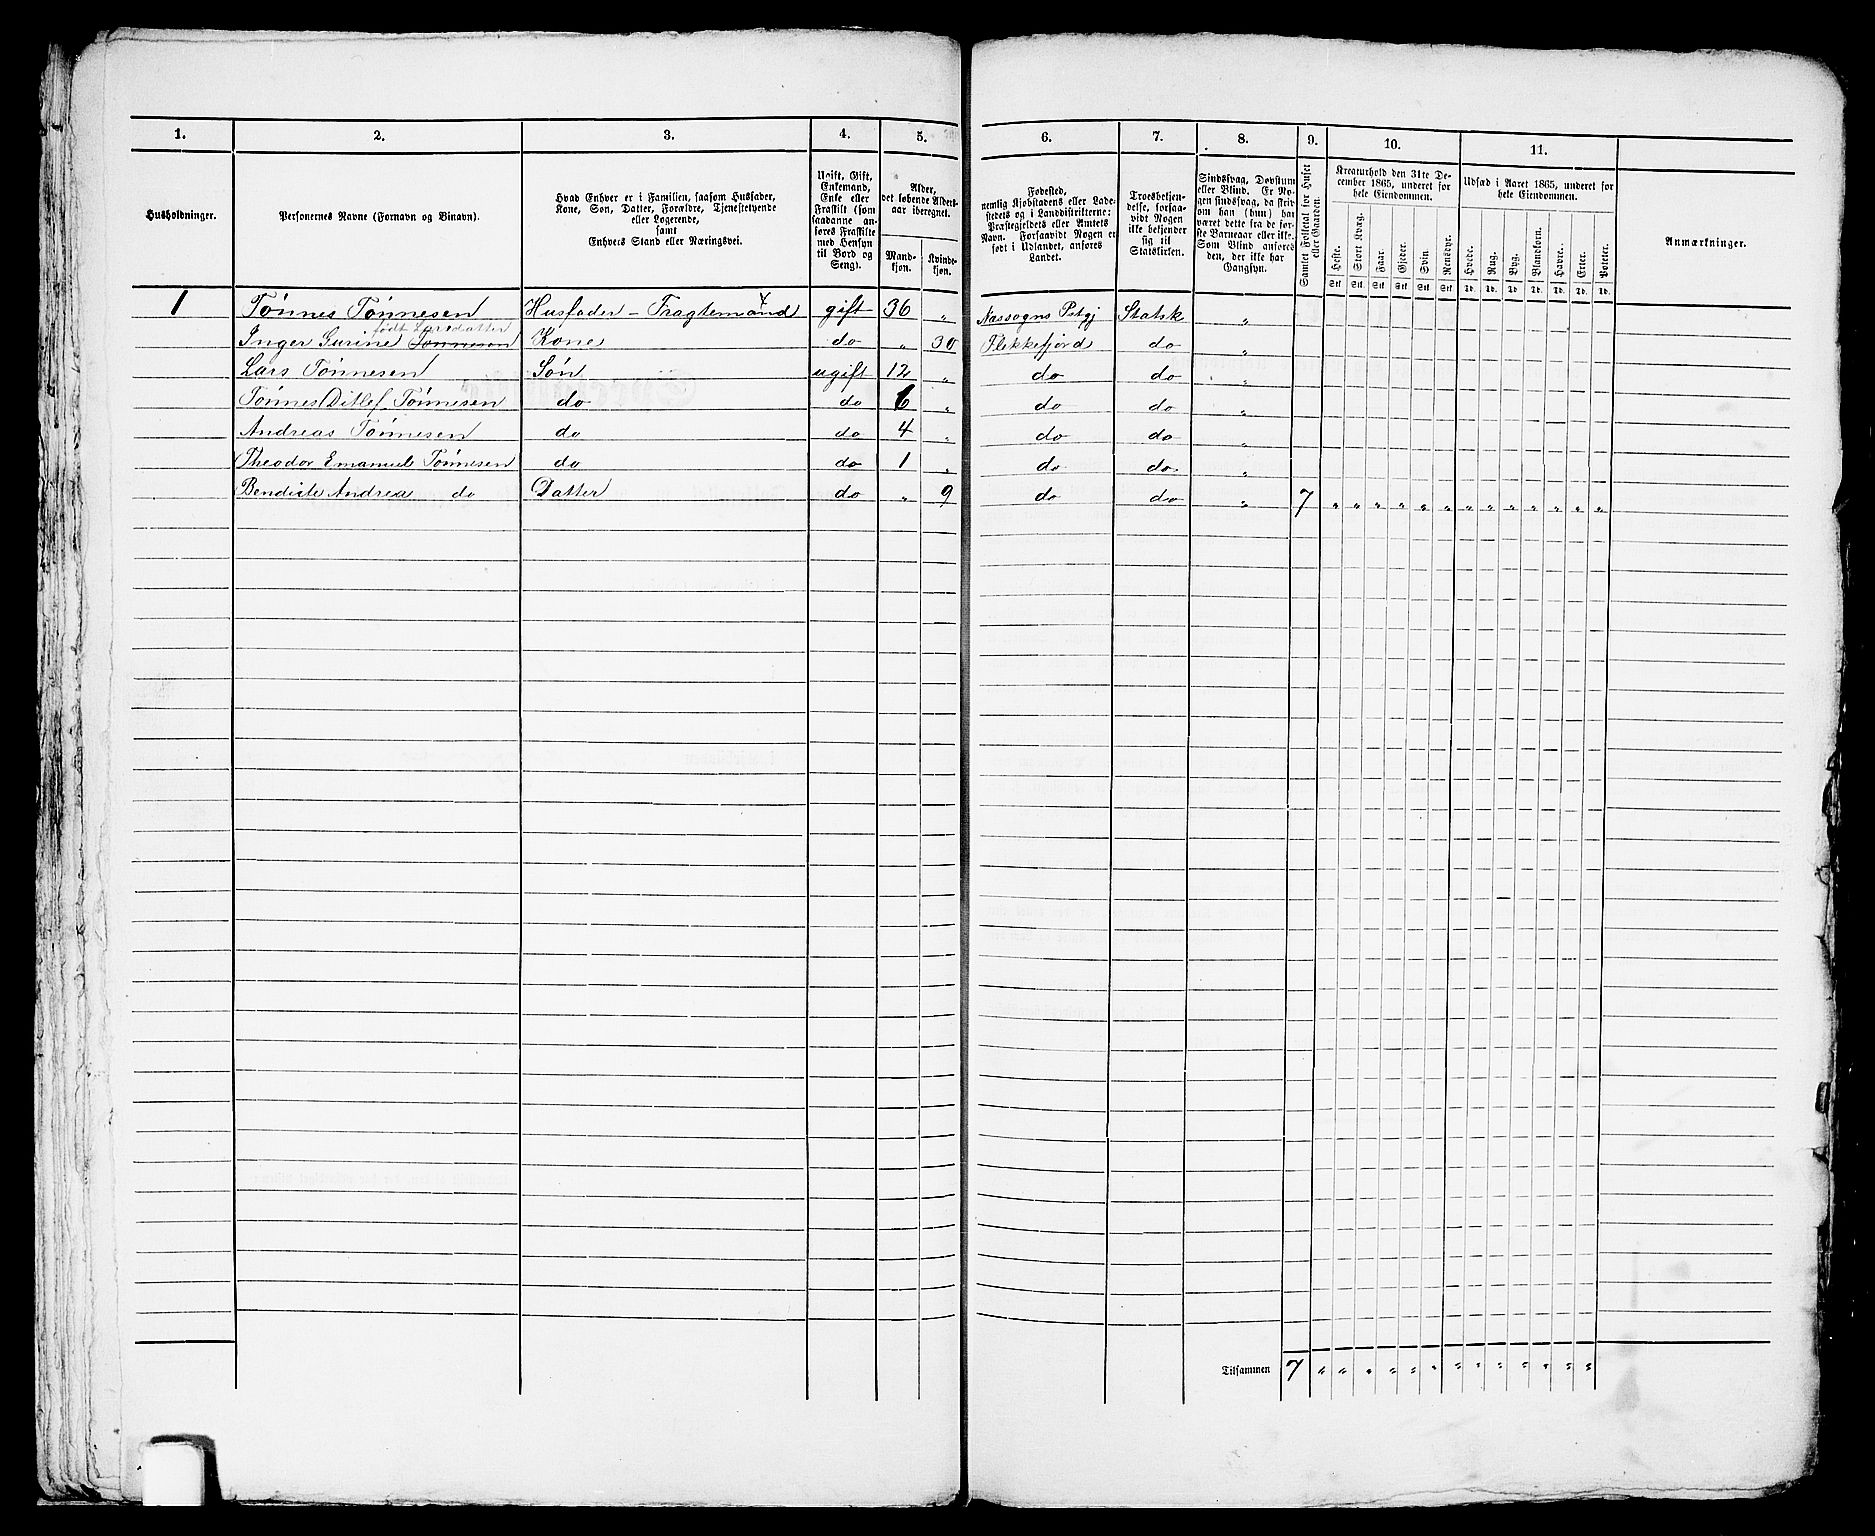 1. 2. 3. 4. 5. 6. 7. 8. 9. 10. 11.
Husholdninger.
Personernes Navne (Fornavn og Binavn).
Hvad Enhver er i Familien, saasom Husfader,
Kone, Søn, Datter, Forældre, Tjenestetyende
eller Logerende,
samt
Enhvers Stand eller Næringsvei.
Ugift, Gift,
Enkemand,
Enke eller
Fraskilt (som
saadanne an-
føres Fraskilte
med Hensyn
til Bord og
Seng).
Alder,
det løbende Alders-
aar iberegnet.
Mand-
kjøn.
Kvinde-
kjøn.
Fødested,
nemlig Kjøbstadens eller Lade-
stedets og i Landdistrikterne:
Præstegjeldets eller Amtets
Navn. Forsaavidt Nogen er
født i Udlandet, anføres
Landet.
Troesbekjen-
delse, forsaa-
vidt Nogen
ikke bekjender
sig til
Statskirken.
Sindssvag, Døvstum
eller Blind. Er No-
gen sindssvag, da skriv
om han (hun) har
været dette fra de før-
ste Barneaar eller ikke.
Som Blind anføres
den, der ikke har
Gangsyn.
Samlet Folketal for Huset
eller Gaarden.
Kreaturhold den 31te De-
cember 1865, underet for
hele Eiendommen.
Heste. Stort Kvæg. Faar. Gjeder. Svin. Rensdyr.
Stk Stk Stk Stk Stk Stk
Udsæd i Aaret 1865, underet for
hele Eiendommen.
Hvede. Rug. Byg. Blandkorn. Havre. Erter. Poteter.
Td. Td. Td. Td. Td. Td. Td.
Anmærkninger.
1 Tønnes Tønnesen Husfader - Fragtemand gift 36 " Næssogns Pstgj Statsk "
født Larsdatter
Inger Gurine Tønnesen Kone do " 30 Flekkefjord do "
Lars Tønnesen Søn ugift 12 " do do "
Tønnes Ditlef Tønnesen do do 6 " do do "
Andreas Tønnesen do do 4 " do do "
Theodor Emanuel Tønnesen do do 1 " do do "
Bendicte Andrea do Datter do " 9 do do " 7 " " " " " " " " " " " " "
Tilsammen 7 " " " " " " " " " " " " "